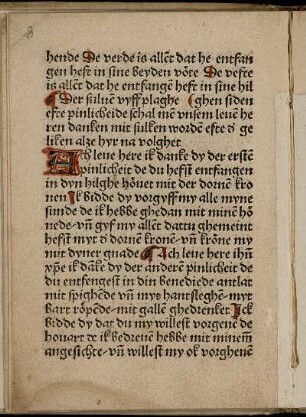 hende De verde is allēt dat he entfan
gen heft in sine beyden vöte De vefte
is allēt dat he entfangē heft in sine hil
Der suluē vyff plaghe (ghen siden
efte pinlicheide schal mē vnsem leuē he
ren danken mit sulken wordēn efte d' ge
liken alze hyr na volghet
Ach leue here ik danke dy der erstē
pinlicheit de du hefst entfangen
in dyn hilghe höuet mit der dornē kro
nen Jk bidde dy vorgyff my alle myne
sunde de ik hebbe ghedan mit minē hö
uede vn̄ gyf my allent dattu ghemeint
hefst myt d' dornē kronē vn̄ krōne my
mit dyner gnade Jch leue here ihū
xp̄e ik dāke dy der anderē pinlicheit de
du entfengest in din benediede antlat
mit spighēde vn̄ myt hantsleghē myt
bart röpēde mit gallē ghedrenket Jck
bidde dy dat du my willest vorgeuē de
houart de ik bedreuē hebbe mit minem
angesichte vn̄ willest my ok vorgheuē